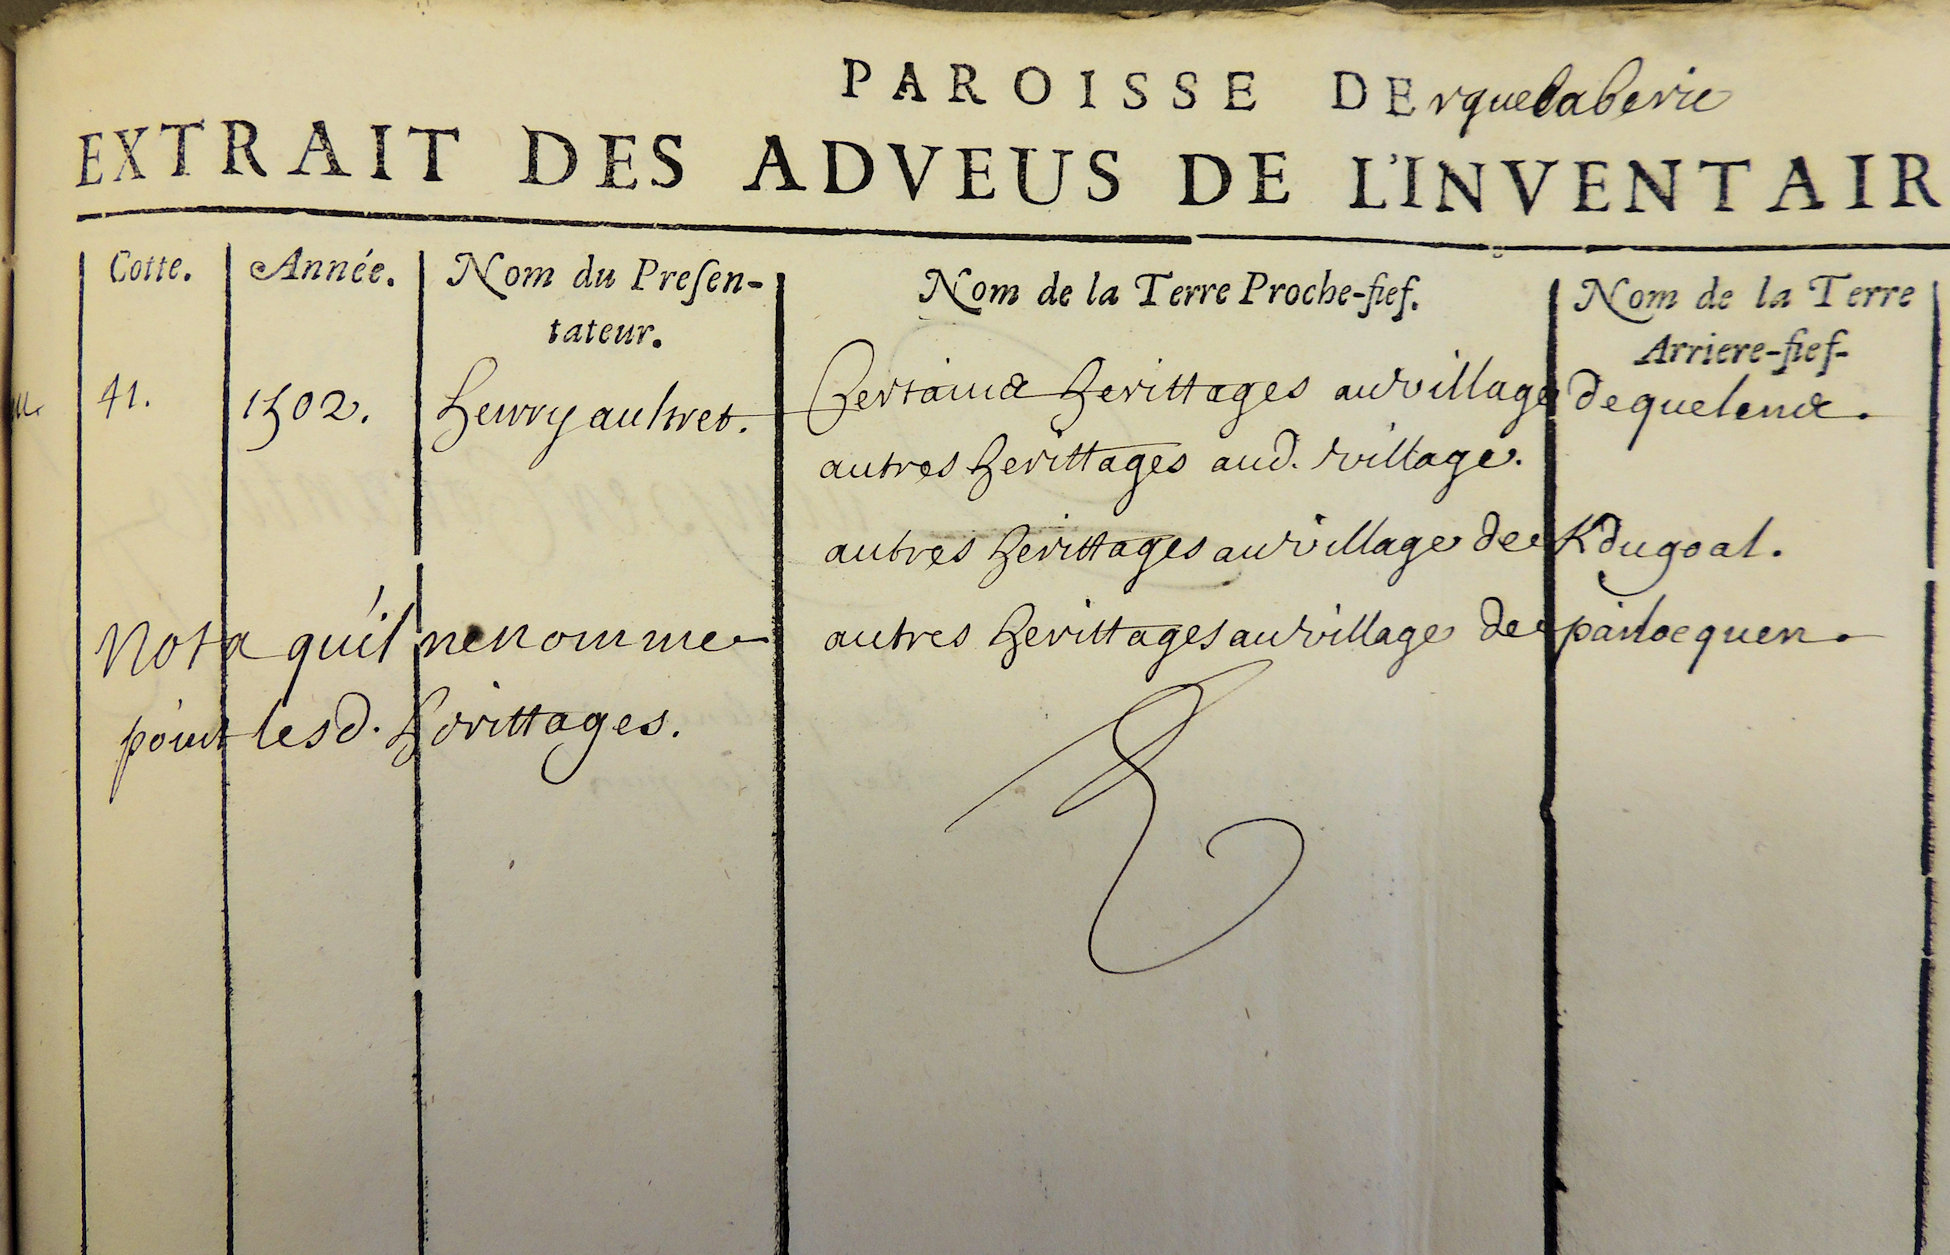 PAROISSE DErqueLaberie
EXTRAIT DES ADVEUS DE L'INVENTAIR
Cotte. Année. Nom du Presen- Nom de la Terre Proche-fief. Nom de la Terre
tateur. Arriere-fief-
41. 1502. henry aultret. Certains herittages au village de quelenec.
autres herittages aud. village.
autres herittages au village de Kdugoal.
Nota qu'il ne nomme autres herittages au village de parlocquen.
point lesd. herittages.